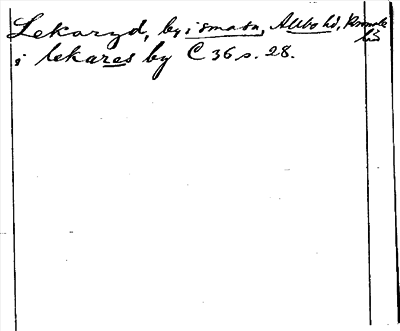 Lekaryd, by i smata, Allbo hd, Kronob. län
i lekares by C 36 s. 28.